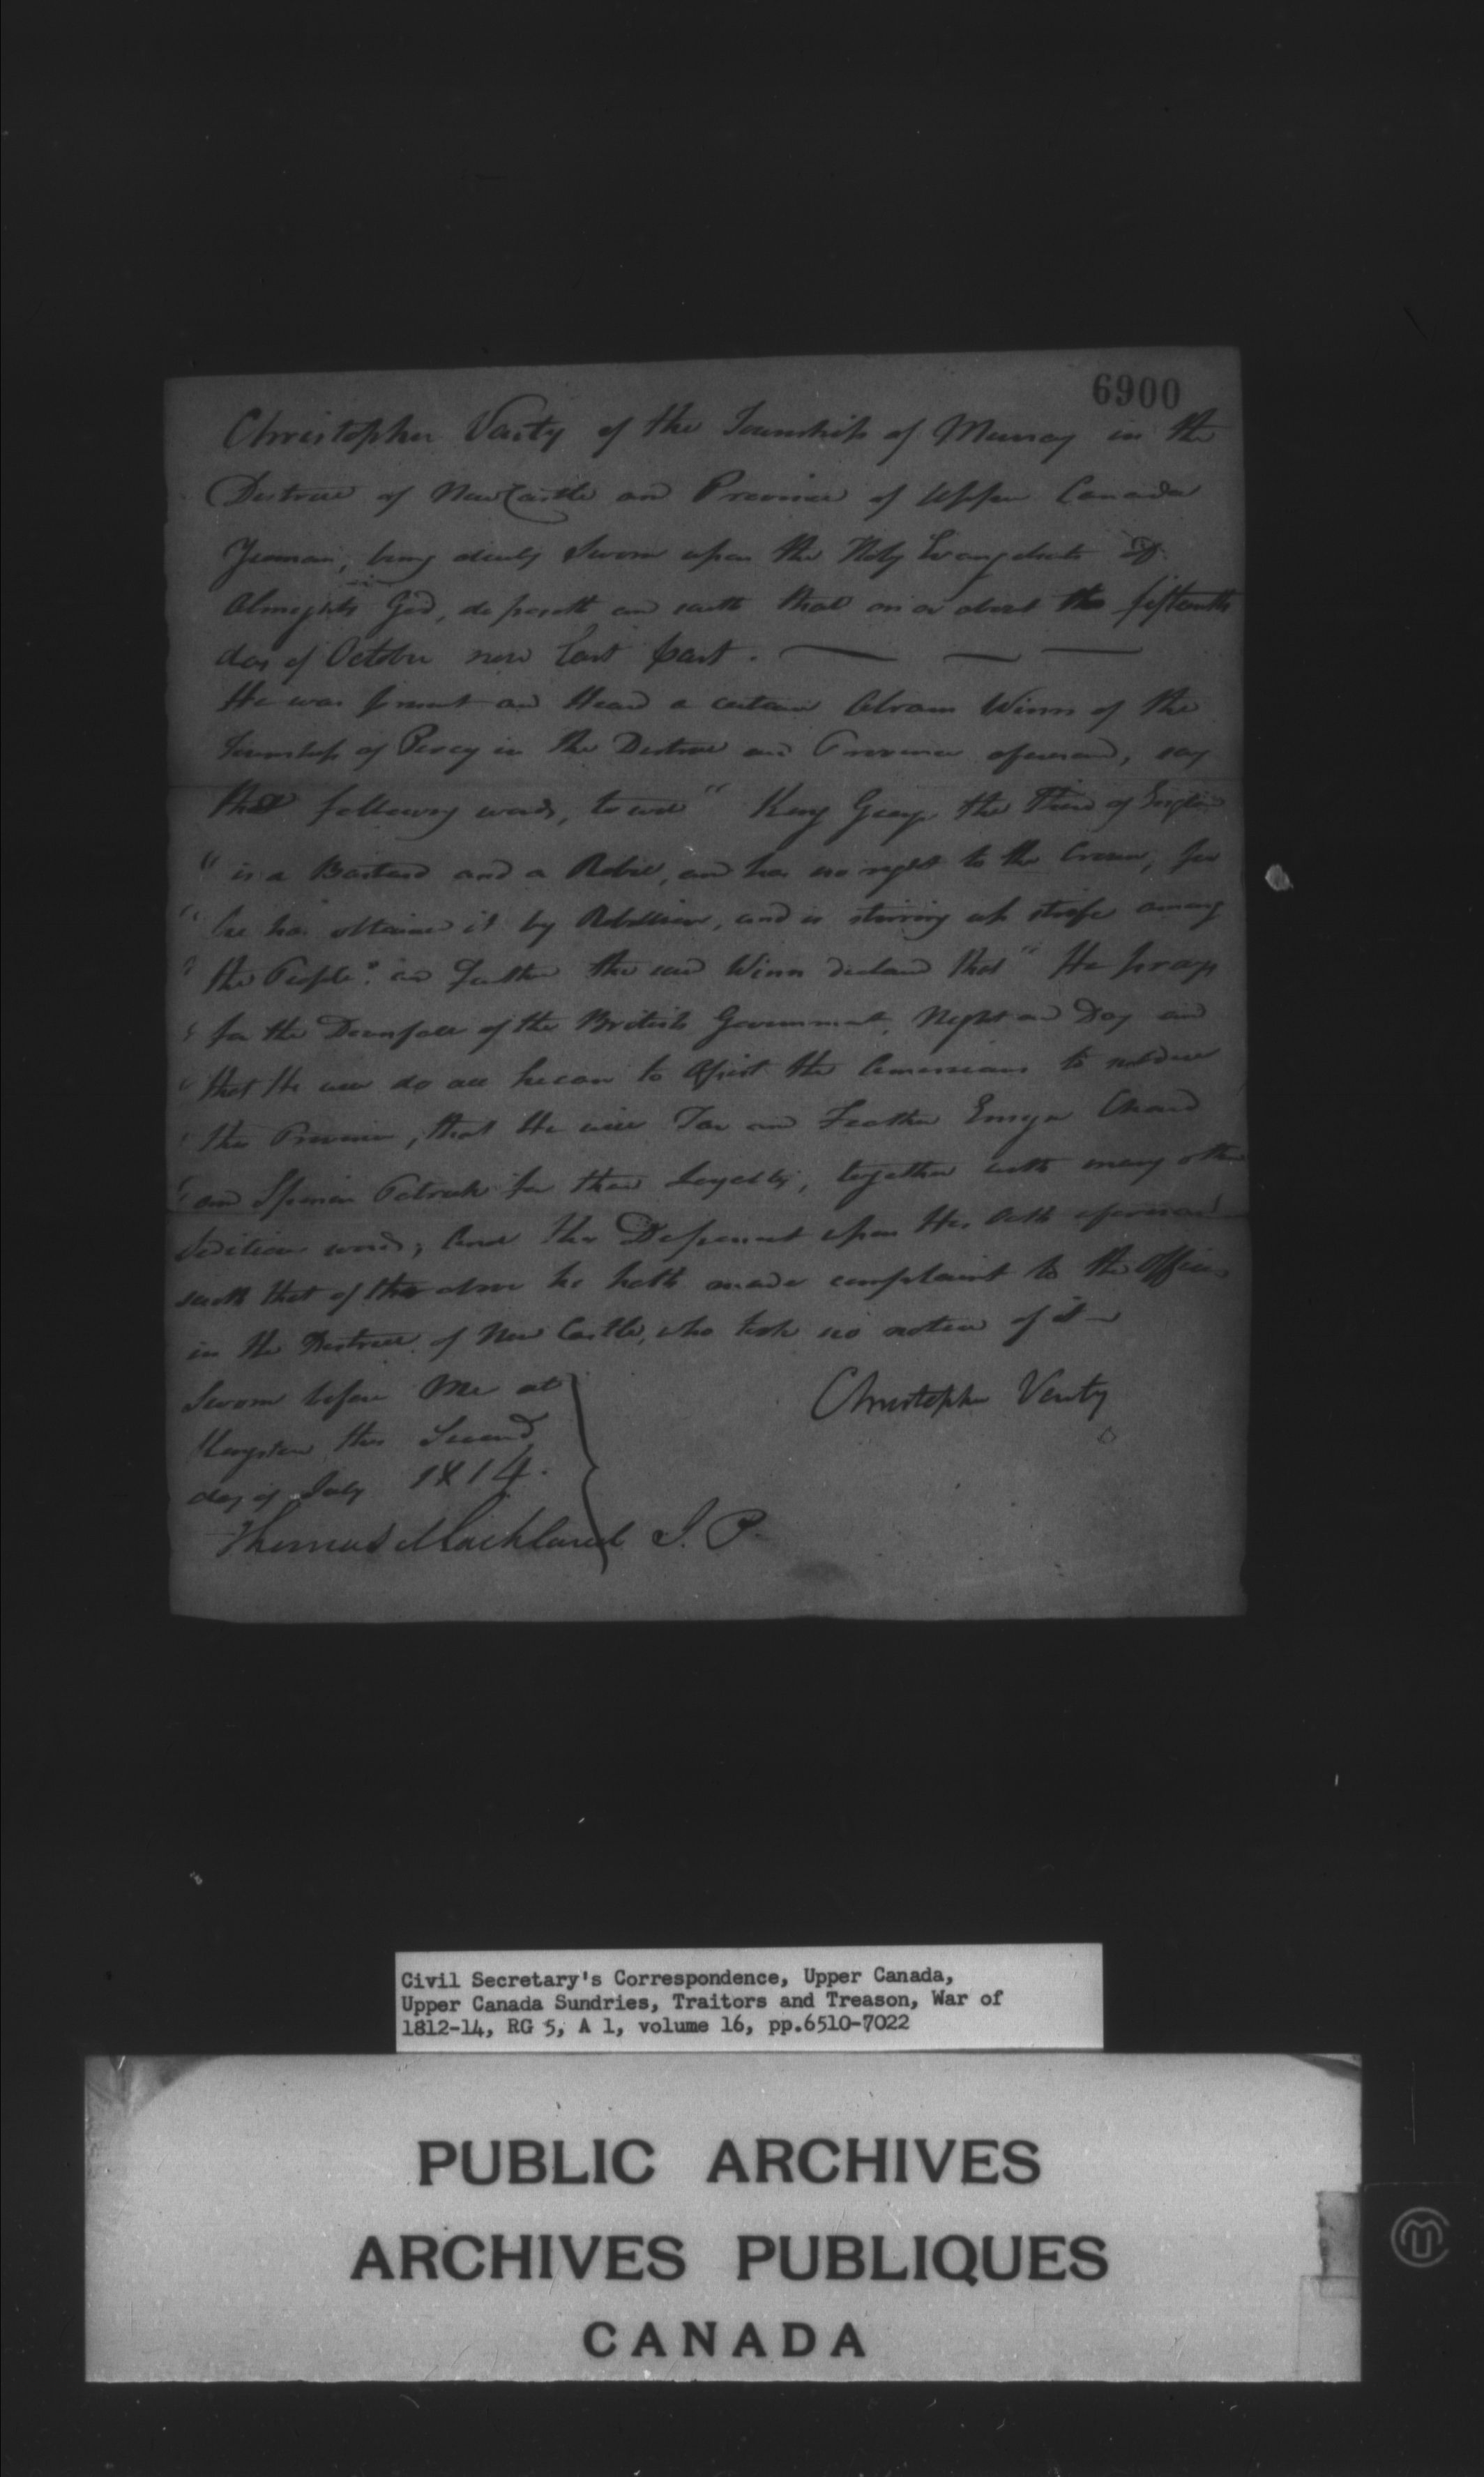 6900
Christopher Varty of the Township of Murray in the
District of NewCastle and Province of Upper Canada
Yeoman, being duely Sworn upon the Holy Evangelists of
Almighty God, deposeth and saith that on or about the fifteenth
day of October now last past.
He was present and Heard a certain Abram Winn of the
Township of Percy in the District and Province aforesaid, say
the following words, to wit " King George the Third of England
" is a Bastard and a Rebel, and has no right to the Crown, for
" he has obtained it by Rebellion, and is stirring up strife among
" the People". and further the said Winn declared that " He prays
" for the Downfall of the British Government, Night and Day and
" that He will do all he can to Assist the Americans to subdue
" the Province, that He will Tar and Feather Ensign Chard
" and Petrick for their Loyalty, together with many other
Seditious words; and this Deponent upon His Oath aforesaid
saith that of the above he hath made complaint to the Officers
in the District of New Castle, who took no notice of it
Sworn before Me at
Kingston this Second
day of July 1814.
Christopher Varty
Thomas Markland J. P.
Civil Secretary's Correspondence, Upper Canada,
Upper Canada Sundries, Traitors and Treason, War of
1812-14, RG 5, A 1, volume 16, pp.6510-7022
PUBLIC ARCHIVES
ARCHIVES PUBLIQUES
CANADA